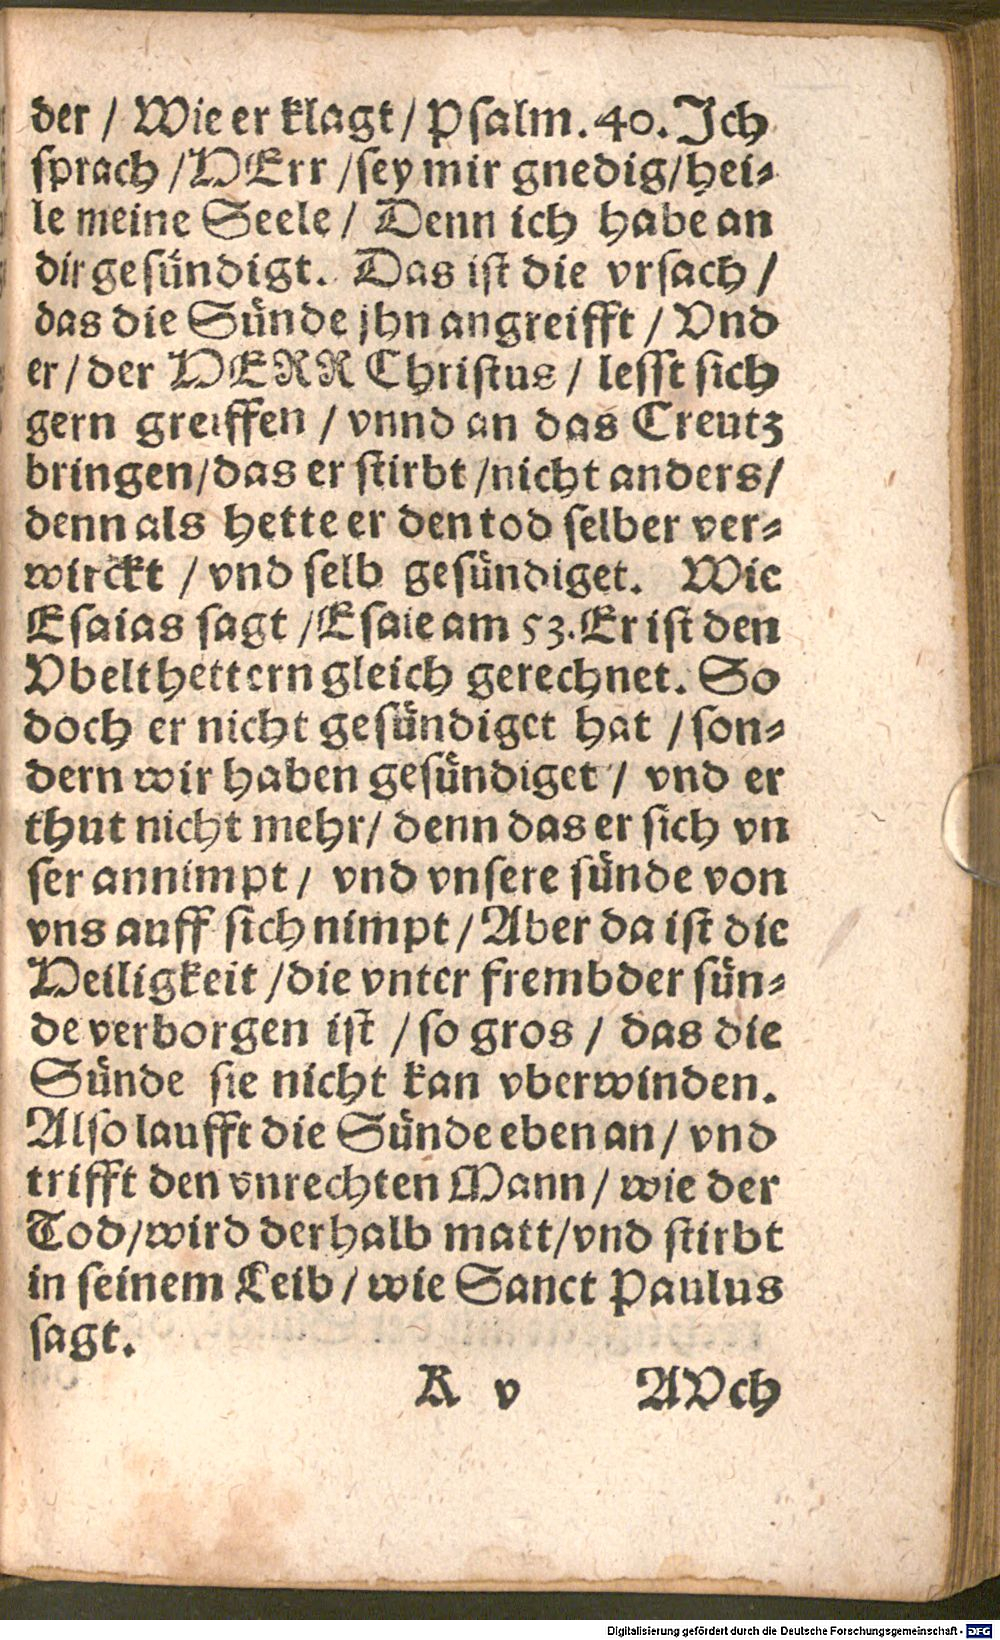 der / Wie er klagt / Psalm. 40. Ich
sprach / HErr / sey mir gnedig / hei-
le meine Seele / Denn ich habe an
dir gesündigt. Das ist die vrsach /
das die Sünde jhn angreifft / Vnd
er / der HERR Christus / lesst sich
gern greiffen / vnnd an das Creutz
bringen / das er stirbt / nicht anders /
denn als hette er den tod selber ver-
wirckt / vnd selb gesündiget. Wie
Esaias sagt / Esaie am 53. Er ist den
Vbelthettern gleich gerechnet. So
doch er nicht gesündiget hat / son-
dern wir haben gesündiget / vnd er
thut nicht mehr / denn das er sich vn
ser annimpt / vnd vnsere sünde von
vns auff sich nimpt / Aber da ist die
Heiligkeit / die vnter frembder sün-
de verborgen ist / so gros / das die
Sünde sie nicht kan vberwinden.
Also laufft die Sünde eben an / vnd
trifft den vnrechten Mann / wie der
Tod / wird derhalb matt / vnd stirbt
in seinem Leib / wie Sanct Paulus
sagt.
K v AVch
Digitalisierung gefördert durch die Deutsche Forschungsgemeinschaft - DFG